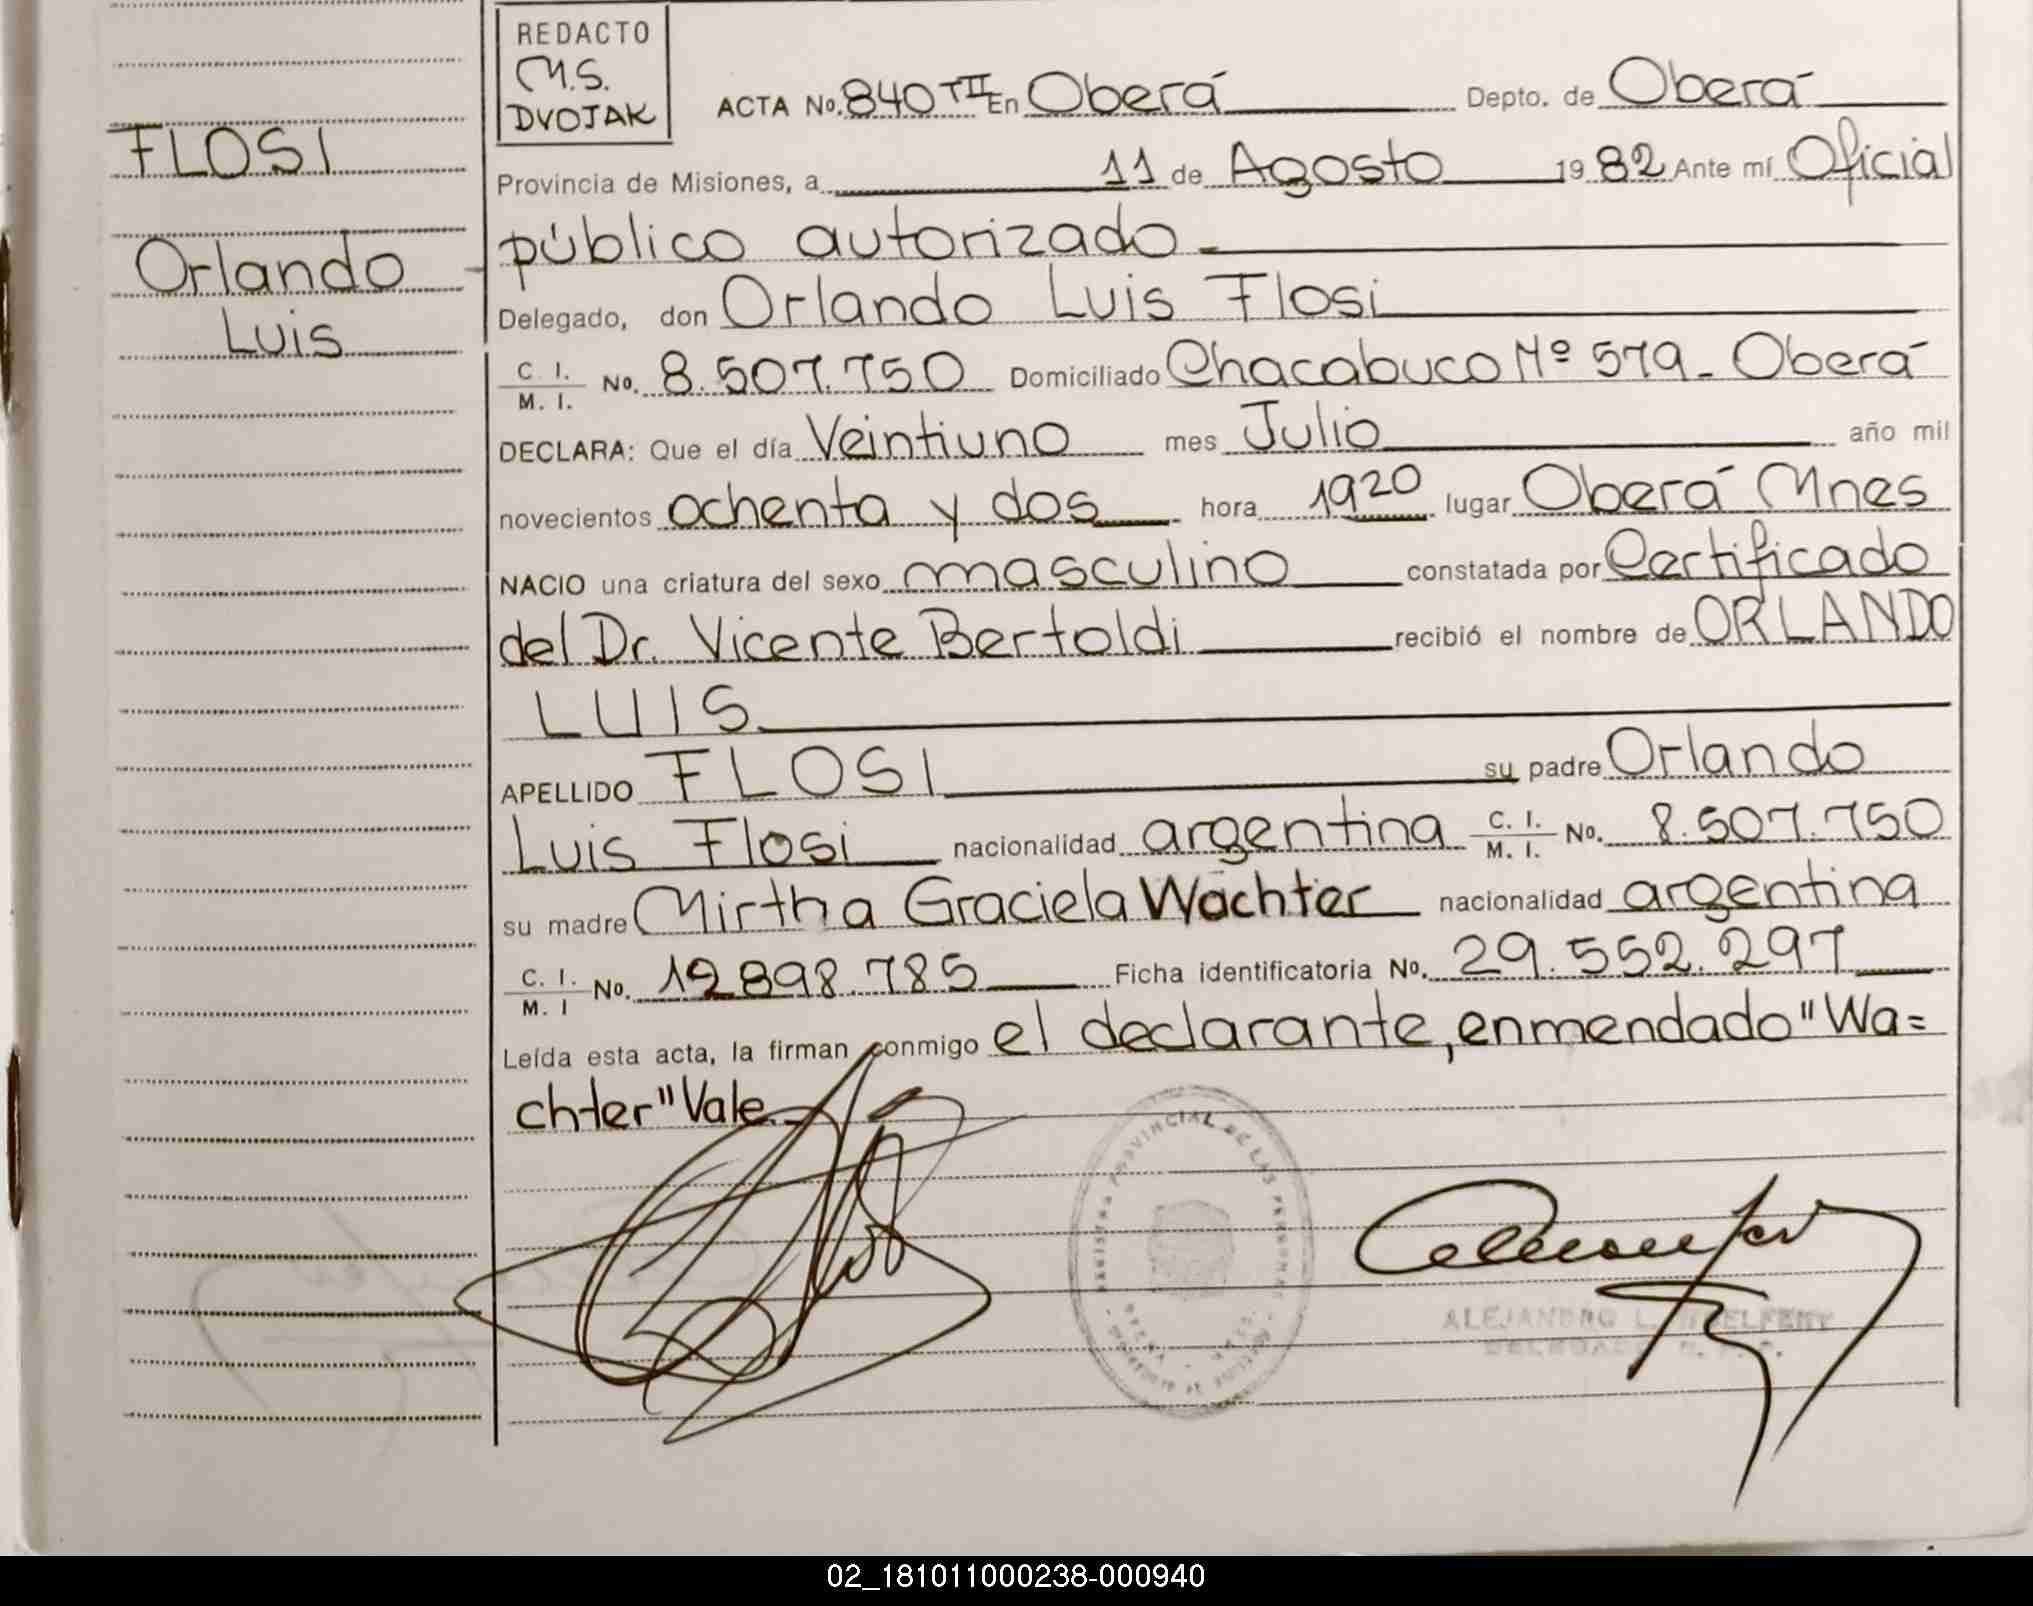 REDACTO
M.S.
DVOJAK
FLOSI
Orlando
Luis
ACTA No. 840 TII En Oberá Depto. de Oberá
Provincia de Misiones, a 11 de Agosto 1982 Ante mí Oficial
público autorizado
Delegado, don Orlando Luis Flosi
C. I. / M. I. No. 8.507.750 Domiciliado Chacabuco Nº 579 - Oberá
DECLARA: Que el día Veintiuno mes Julio año mil
novecientos ochenta y dos hora 1920 lugar Oberá Mnes
NACIO una criatura del sexo masculino constatada por Certificado
del Dr. Vicente Bertoldi recibió el nombre de ORLANDO
LUIS
APELLIDO FLOSI su padre Orlando
Luis Flosi nacionalidad argentina C. I. / M. I. No. 8.507.750
su madre Mirtha Graciela Wachter nacionalidad argentina
C. I. / M. I No. 12.898.785 Ficha identificatoria No. 29.552.297
Leída esta acta, la firman conmigo el declarante, enmendado "Wa=
chter" Vale.-
PROVINCIAL DE LAS PERSONAS
ALEJANDRO L.
DELEGADO
02_181011000238-000940